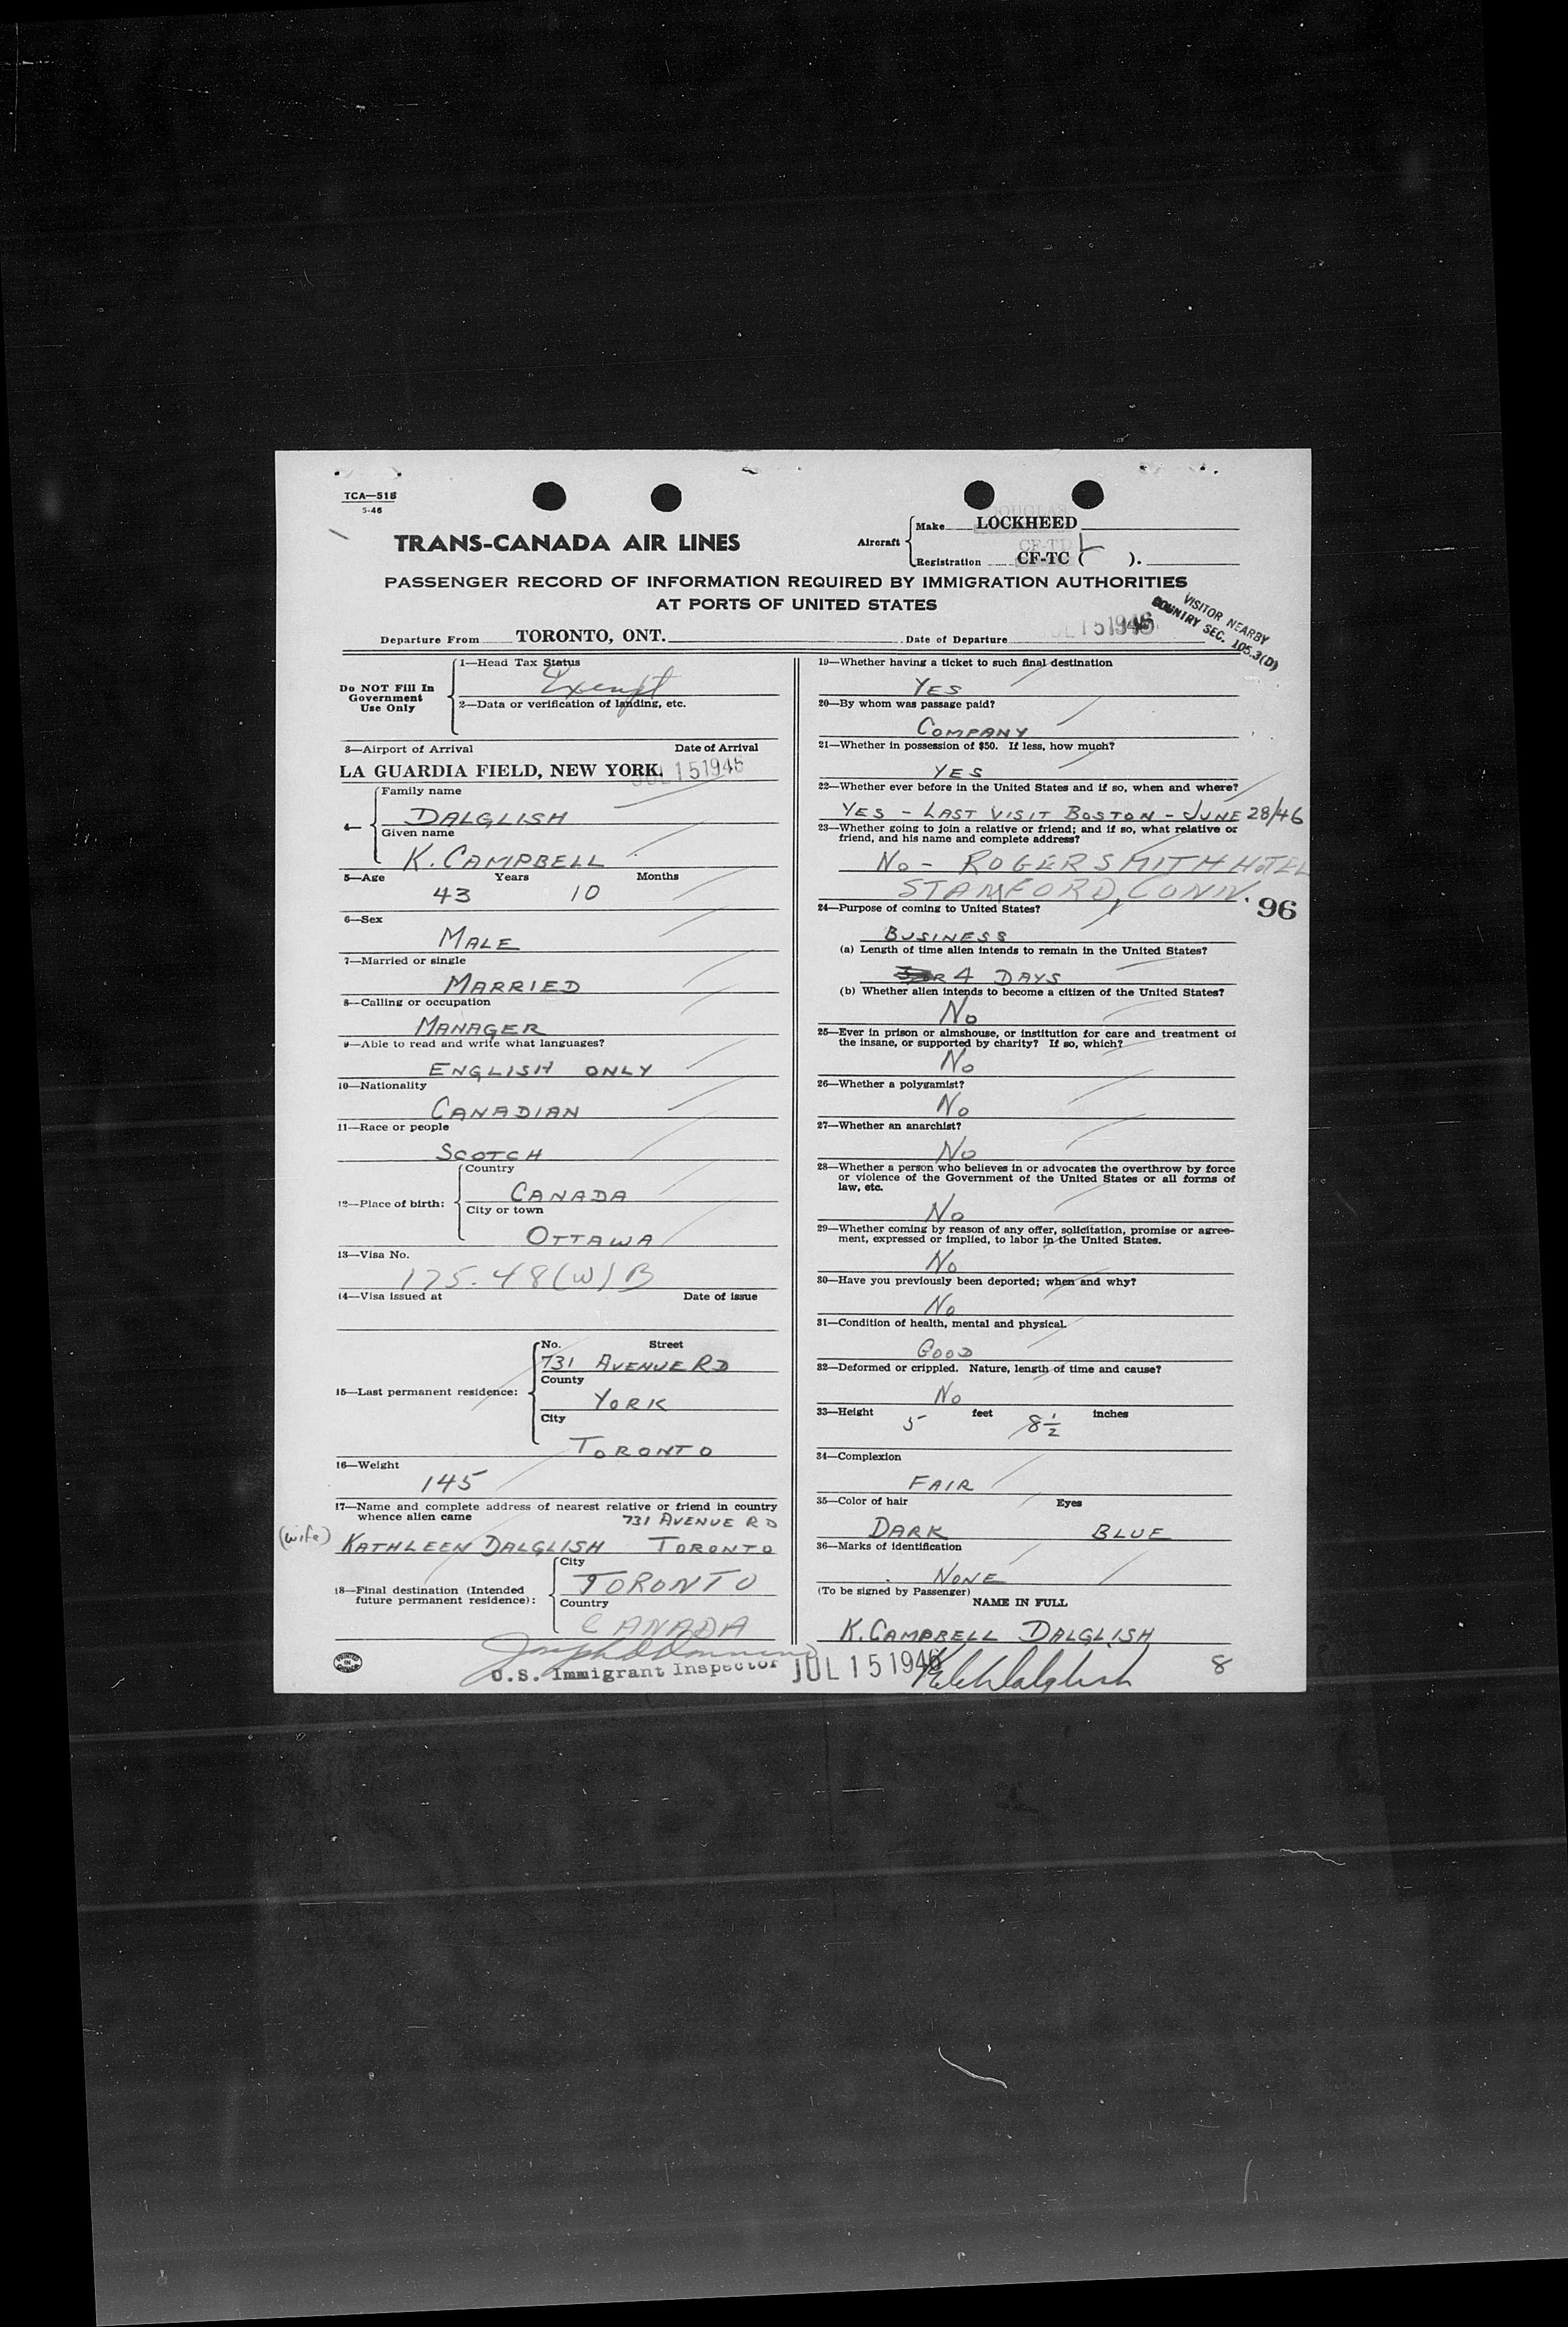 TCA—518
5-46
TRANS-CANADA AIR LINES
Aircraft
Make LOCKHEED
DOUGLAS
Registration CF-TC ( L ).
CF-TD
PASSENGER RECORD OF INFORMATION REQUIRED BY IMMIGRATION AUTHORITIES
AT PORTS OF UNITED STATES
VISITOR NEARBY
COUNTRY SEC. 105.3(D)
Departure From TORONTO, ONT. Date of Departure JUL 15 1946
Do NOT Fill In
Government
Use Only
1—Head Tax Status
Exempt
2—Data or verification of landing, etc.
3—Airport of Arrival Date of Arrival
LA GUARDIA FIELD, NEW YORK. JUL 15 1946
4—
Family name
DALGLISH
Given name
K. CAMPBELL
5—Age Years Months
43 10
6—Sex
MALE
7—Married or single
MARRIED
8—Calling or occupation
MANAGER
9—Able to read and write what languages?
ENGLISH ONLY
10—Nationality
CANADIAN
11—Race or people
SCOTCH
12—Place of birth:
Country
CANADA
City or town
OTTAWA
13—Visa No.
175.48(W)B
14—Visa issued at Date of issue
15—Last permanent residence:
No. Street
731 AVENUE RD
County
YORK
City
TORONTO
16—Weight
145
17—Name and complete address of nearest relative or friend in country
whence alien came 731 AVENUE RD
(wife) KATHLEEN DALGLISH TORONTO
18—Final destination (Intended
future permanent residence):
City
TORONTO
Country
CANADA
19—Whether having a ticket to such final destination
YES
20—By whom was passage paid?
COMPANY
21—Whether in possession of $50. If less, how much?
YES
22—Whether ever before in the United States and if so, when and where?
YES - LAST VISIT BOSTON - JUNE 28/46
23—Whether going to join a relative or friend; and if so, what relative or
friend, and his name and complete address?
NO - ROGER SMITH HOTEL
STAMFORD, CONN.
96
24—Purpose of coming to United States?
BUSINESS
(a) Length of time alien intends to remain in the United States?
4 DAYS
(b) Whether alien intends to become a citizen of the United States?
NO
25—Ever in prison or almshouse, or institution for care and treatment of
the insane, or supported by charity? If so, which?
NO
26—Whether a polygamist?
NO
27—Whether an anarchist?
NO
28—Whether a person who believes in or advocates the overthrow by force
or violence of the Government of the United States or all forms of
law, etc.
NO
29—Whether coming by reason of any offer, solicitation, promise or agree-
ment, expressed or implied, to labor in the United States.
NO
30—Have you previously been deported; when and why?
NO
31—Condition of health, mental and physical.
GOOD
32—Deformed or crippled. Nature, length of time and cause?
NO
33—Height 5 feet 8 1/2 inches
34—Complexion
FAIR
35—Color of hair Eyes
DARK BLUE
36—Marks of identification
NONE
(To be signed by Passenger)
NAME IN FULL
K. CAMPBELL DALGLISH
PRINTED
IN
CANADA
U.S. Immigrant Inspector JUL 15 1946
8